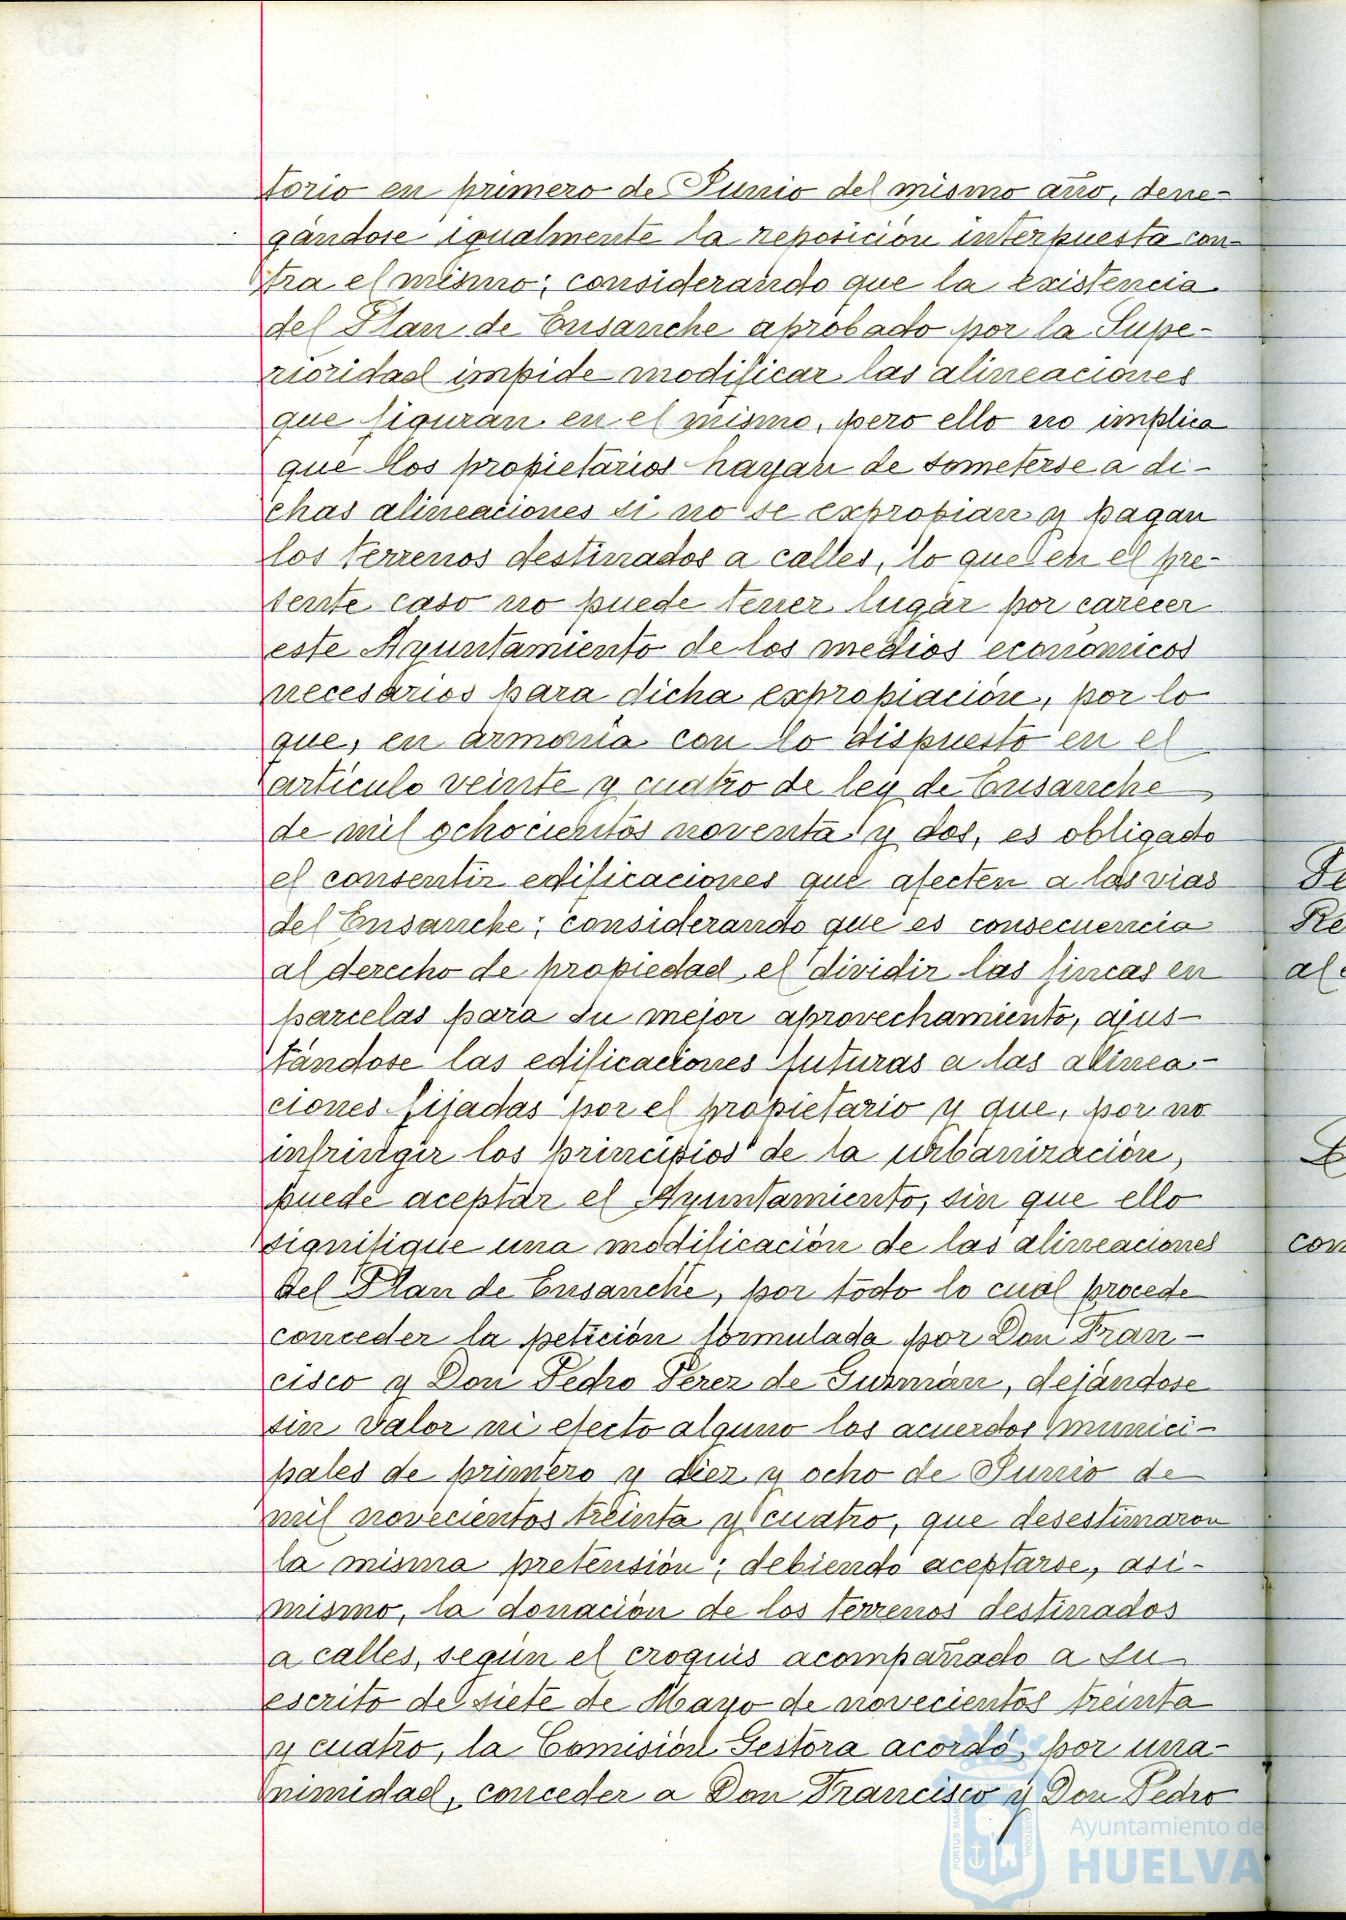 torio en primero de Junio del mismo año, dene-
gándose igualmente la reposición interpuesta con-
tra el mismo; considerando que la existencia
del Plan de Ensanche aprobado por la Supe-
rioridad impide modificar las alineaciones
que figuran en el mismo, pero ello no implica
que los propietarios hayan de someterse a di-
chas alineaciones si no se expropian y pagan
los terrenos destinados a calles, lo que en el pre-
sente caso no puede tener lugar por carecer
este Ayuntamiento de los medios económicos
necesarios para dicha expropiación, por lo
que, en armonía con lo dispuesto en el
artículo veinte y cuatro de ley de Ensanche
de mil ochocientos noventa y dos, es obligado
el consentir edificaciones que afecten a las vias
del Ensanche; considerando que es consecuencia
al derecho de propiedad el dividir las fincas en
parcelas para su mejor aprovechamiento, ajus-
tándose las edificaciones futuras a las alinea-
ciones fijadas por el propietario y que, por no
infringir los principios de la urbanización,
puede aceptar el Ayuntamiento, sin que ello
signifique una modificación de las alineaciones
del Plan de Ensanche, por todo lo cual procede
conceder la petición formulada por Don Fran-
cisco y Don Pedro Pérez de Guzmán, dejándose
sin valor ni efecto alguno los acuerdos munici-
pales de primero y diez y ocho de Junio de
mil novecientos treinta y cuatro, que desestimaron
la misma pretensión; debiendo aceptarse, asi-
mismo, la donación de los terrenos destinados
a calles, según el croquis acompañado a su
escrito de siete de Mayo de novecientos treinta
y cuatro, la Comisión Gestora acordó, por una-
nimidad, conceder a Don Francisco y Don Pedro
Ayuntamiento de
HUELVA
Re
al
con